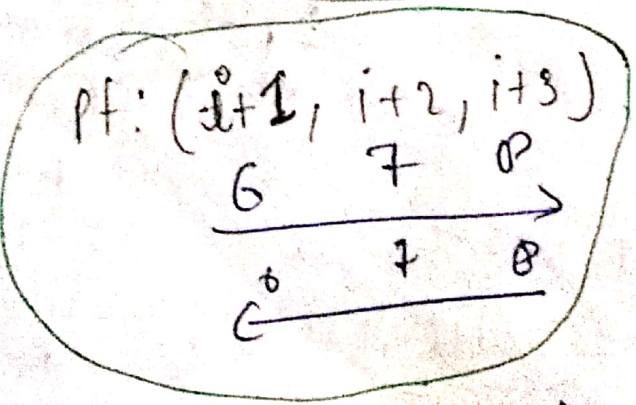 pf: (i+1, i+2, i+3)
6 7 8
6 7 8